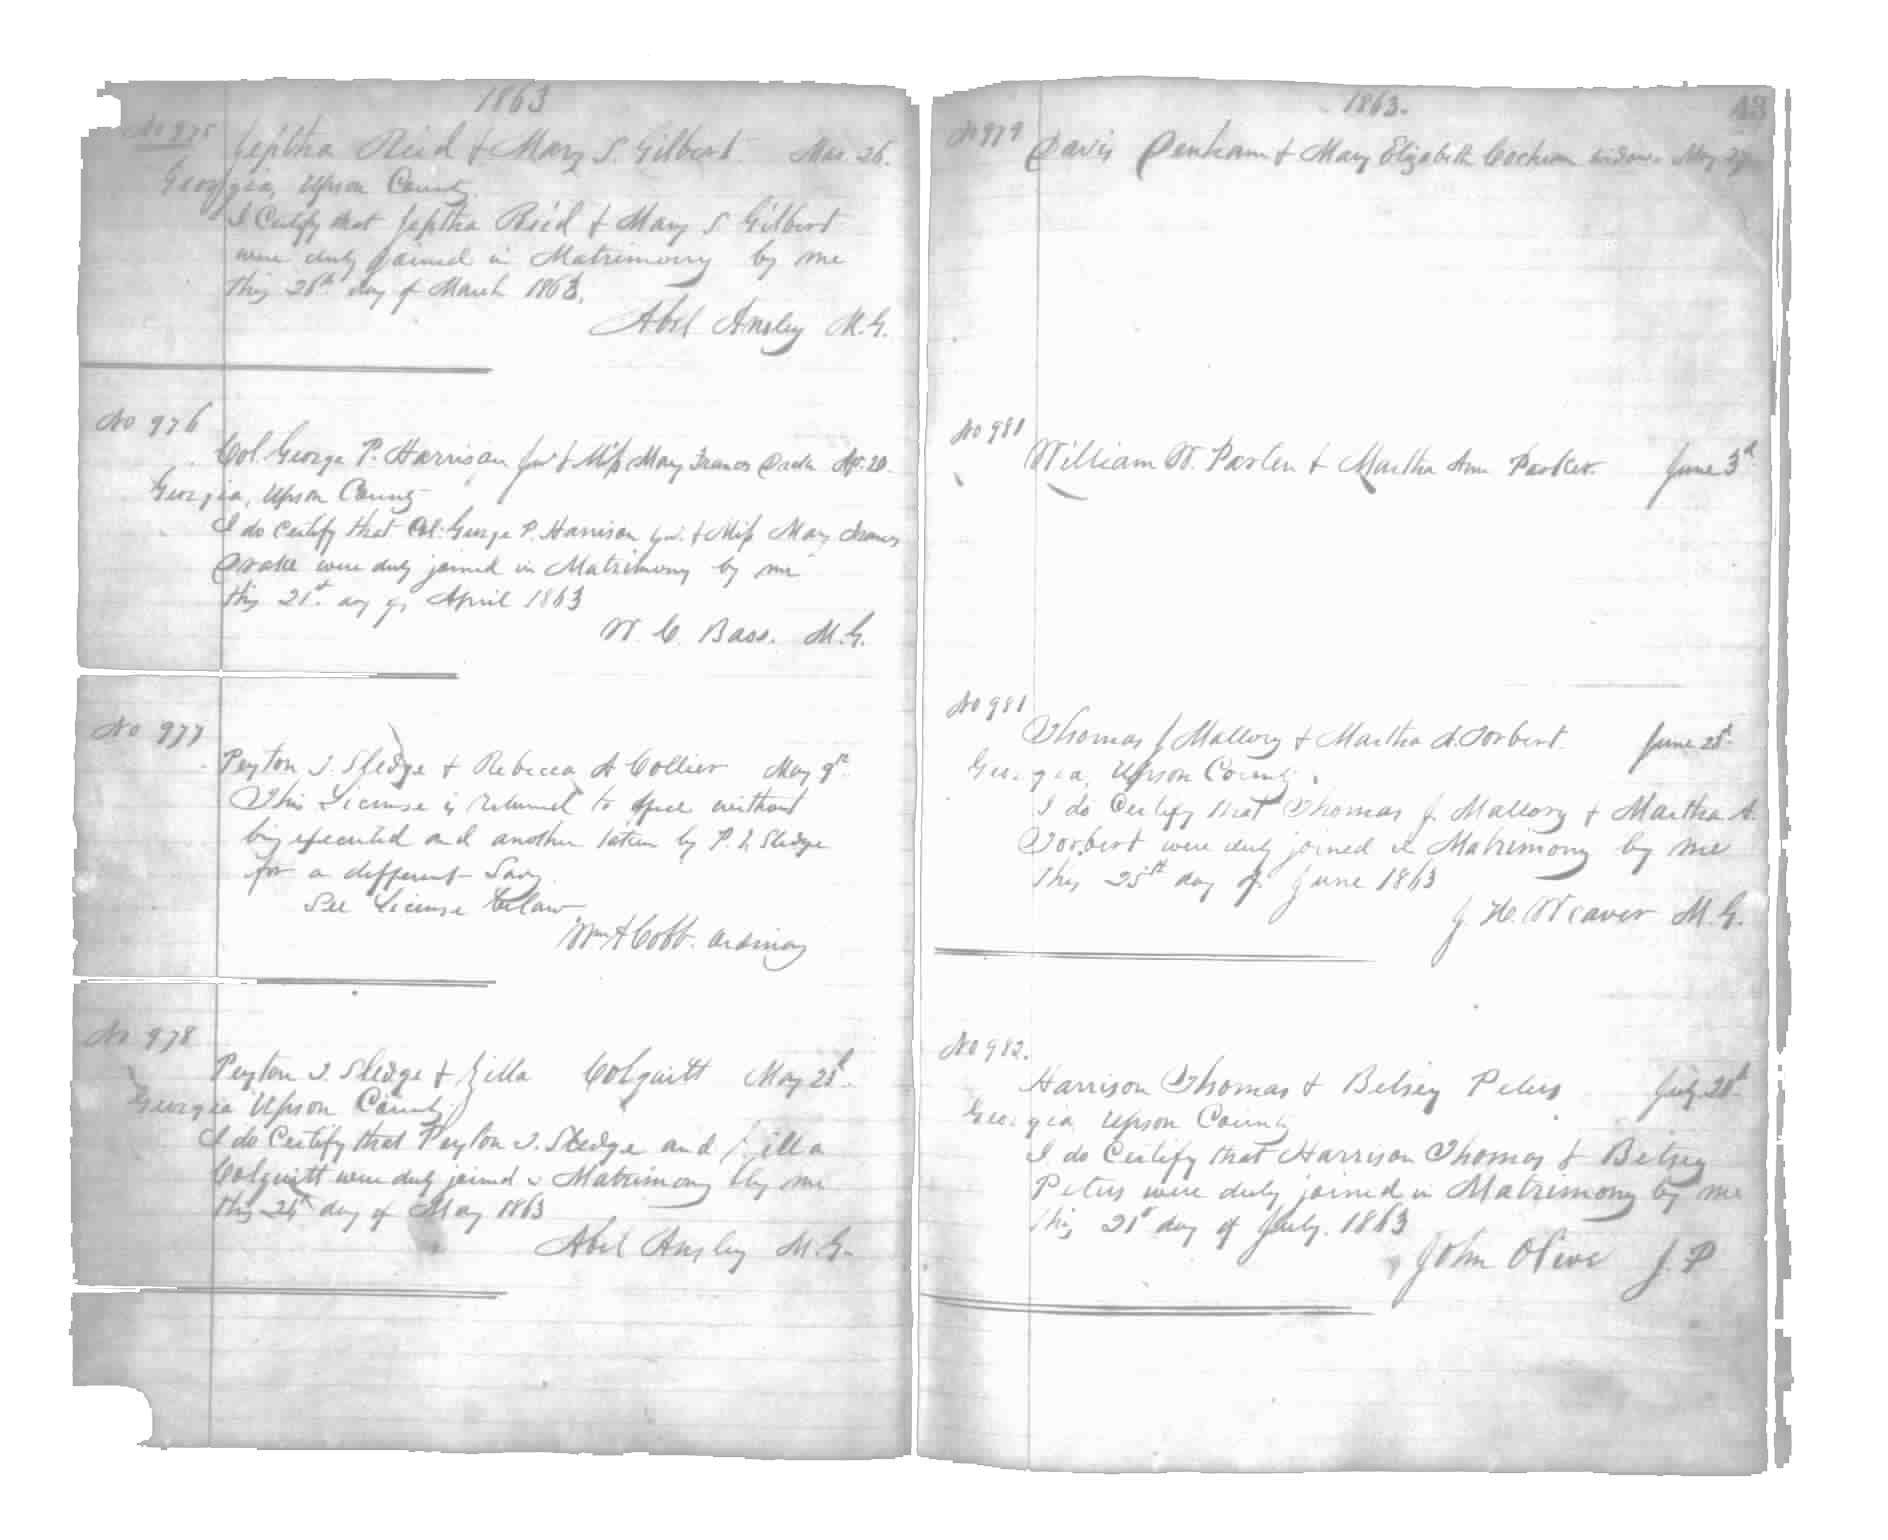 1863
No 975 Jeptha Reid & Mary S. Gilbert. Mar. 26.
Georgia, Upson County.
I Certify that Jeptha Reid & Mary S Gilbert
were duly joined in Matrimony by me
this 26th day of March 1863.
Abel Ansley M.G.
No 976
Col. George P. Harrison Jnr & Miss Mary Frances Drake Ap. 20.
Georgia, Upson County
I do certify that Col. George P. Harrison Jnr. & Miss Mary Frances
Drake were duly joined in Matrimony by me
this 21st day of April 1863
W. C. Bass. M.G.
No 977
Peyton T. Sledge & Rebecca A Collier May 9th
This License is returned to office without
being executed and another taken by P. T. Sledge
for a different Lady
See License below
Wm A Cobb. Ordinary
No 978
Peyton T. Sledge & Zilla Colquitt May 23d
Georgia Upson County
I do Certify that Peyton T. Sledge and Zilla
Colquitt were duly joined in Matrimony by me
this 24th day of May 1863
Abel Ansley M.G.
1863. 43
No 979 Davis Denham & Mary Elizabeth Cochran widow May 27
No 981
William W. Parten & Martha Ann Parker. June 3d
No 981
Thomas J Mallory & Martha A. Torbert. June 25th
Georgia, Upson County.
I do Certify that Thomas J. Mallory & Martha A.
Torbert were duly joined in Matrimony by me
This 25th day of June 1863
J. H. Weaver M.G.
No 982.
Harrison Thomas & Betsey Peters July 20th
Georgia Upson County
I do Certify that Harrison Thomas & Betsey
Peters were duly joined in Matrimony by me
This 21st day of July. 1863
John Olive J.P